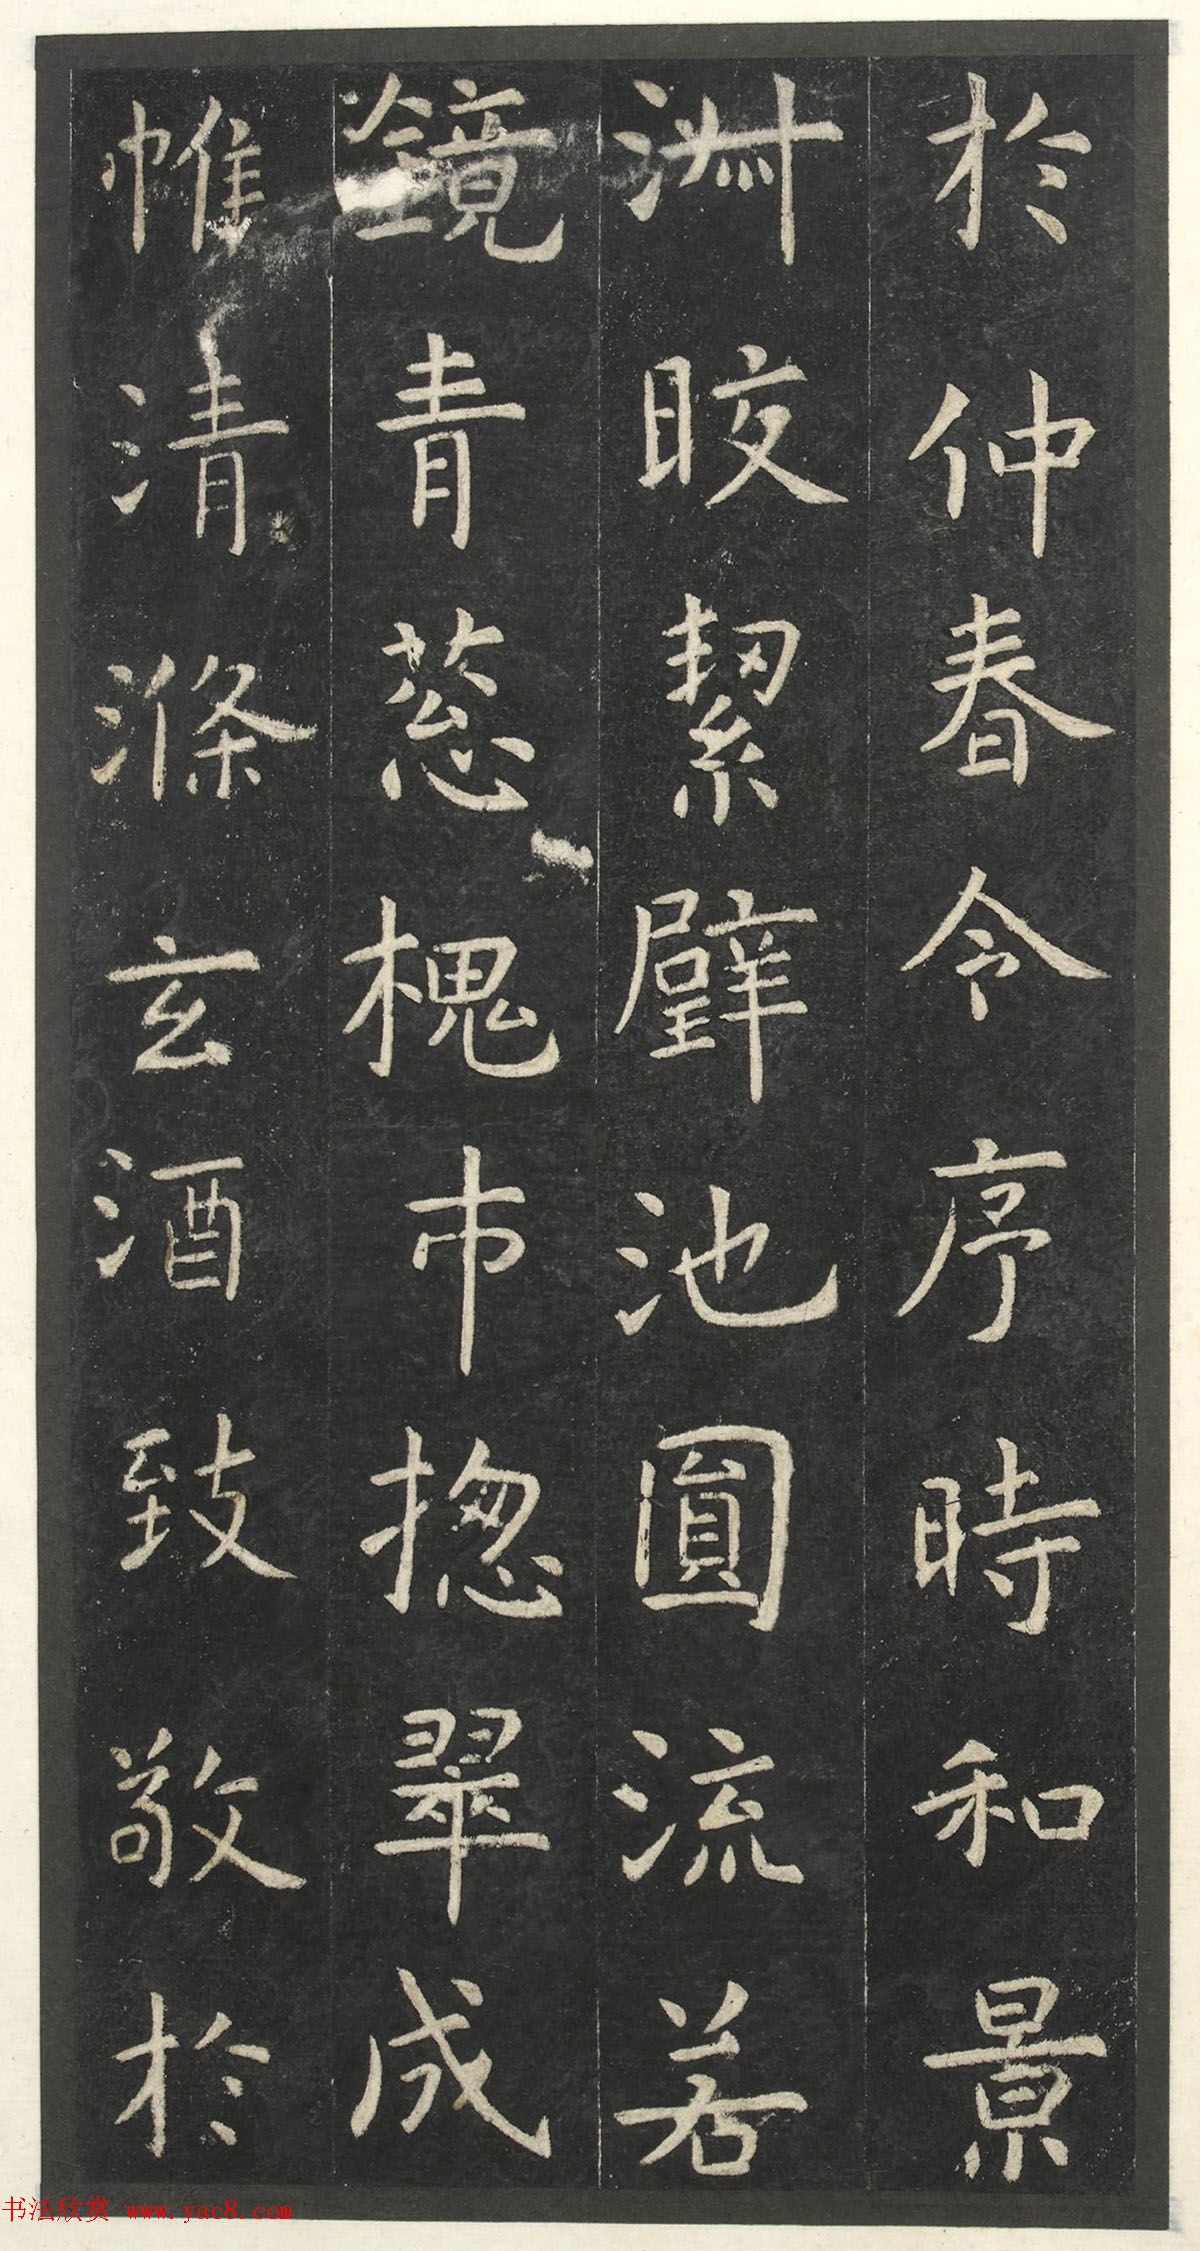 於仲春令序時和景
淋晈絜璧池圓流若
鏡青葱槐市揔翠成
帷清滌玄酒致敬於
书法欣赏 www.yac8.com